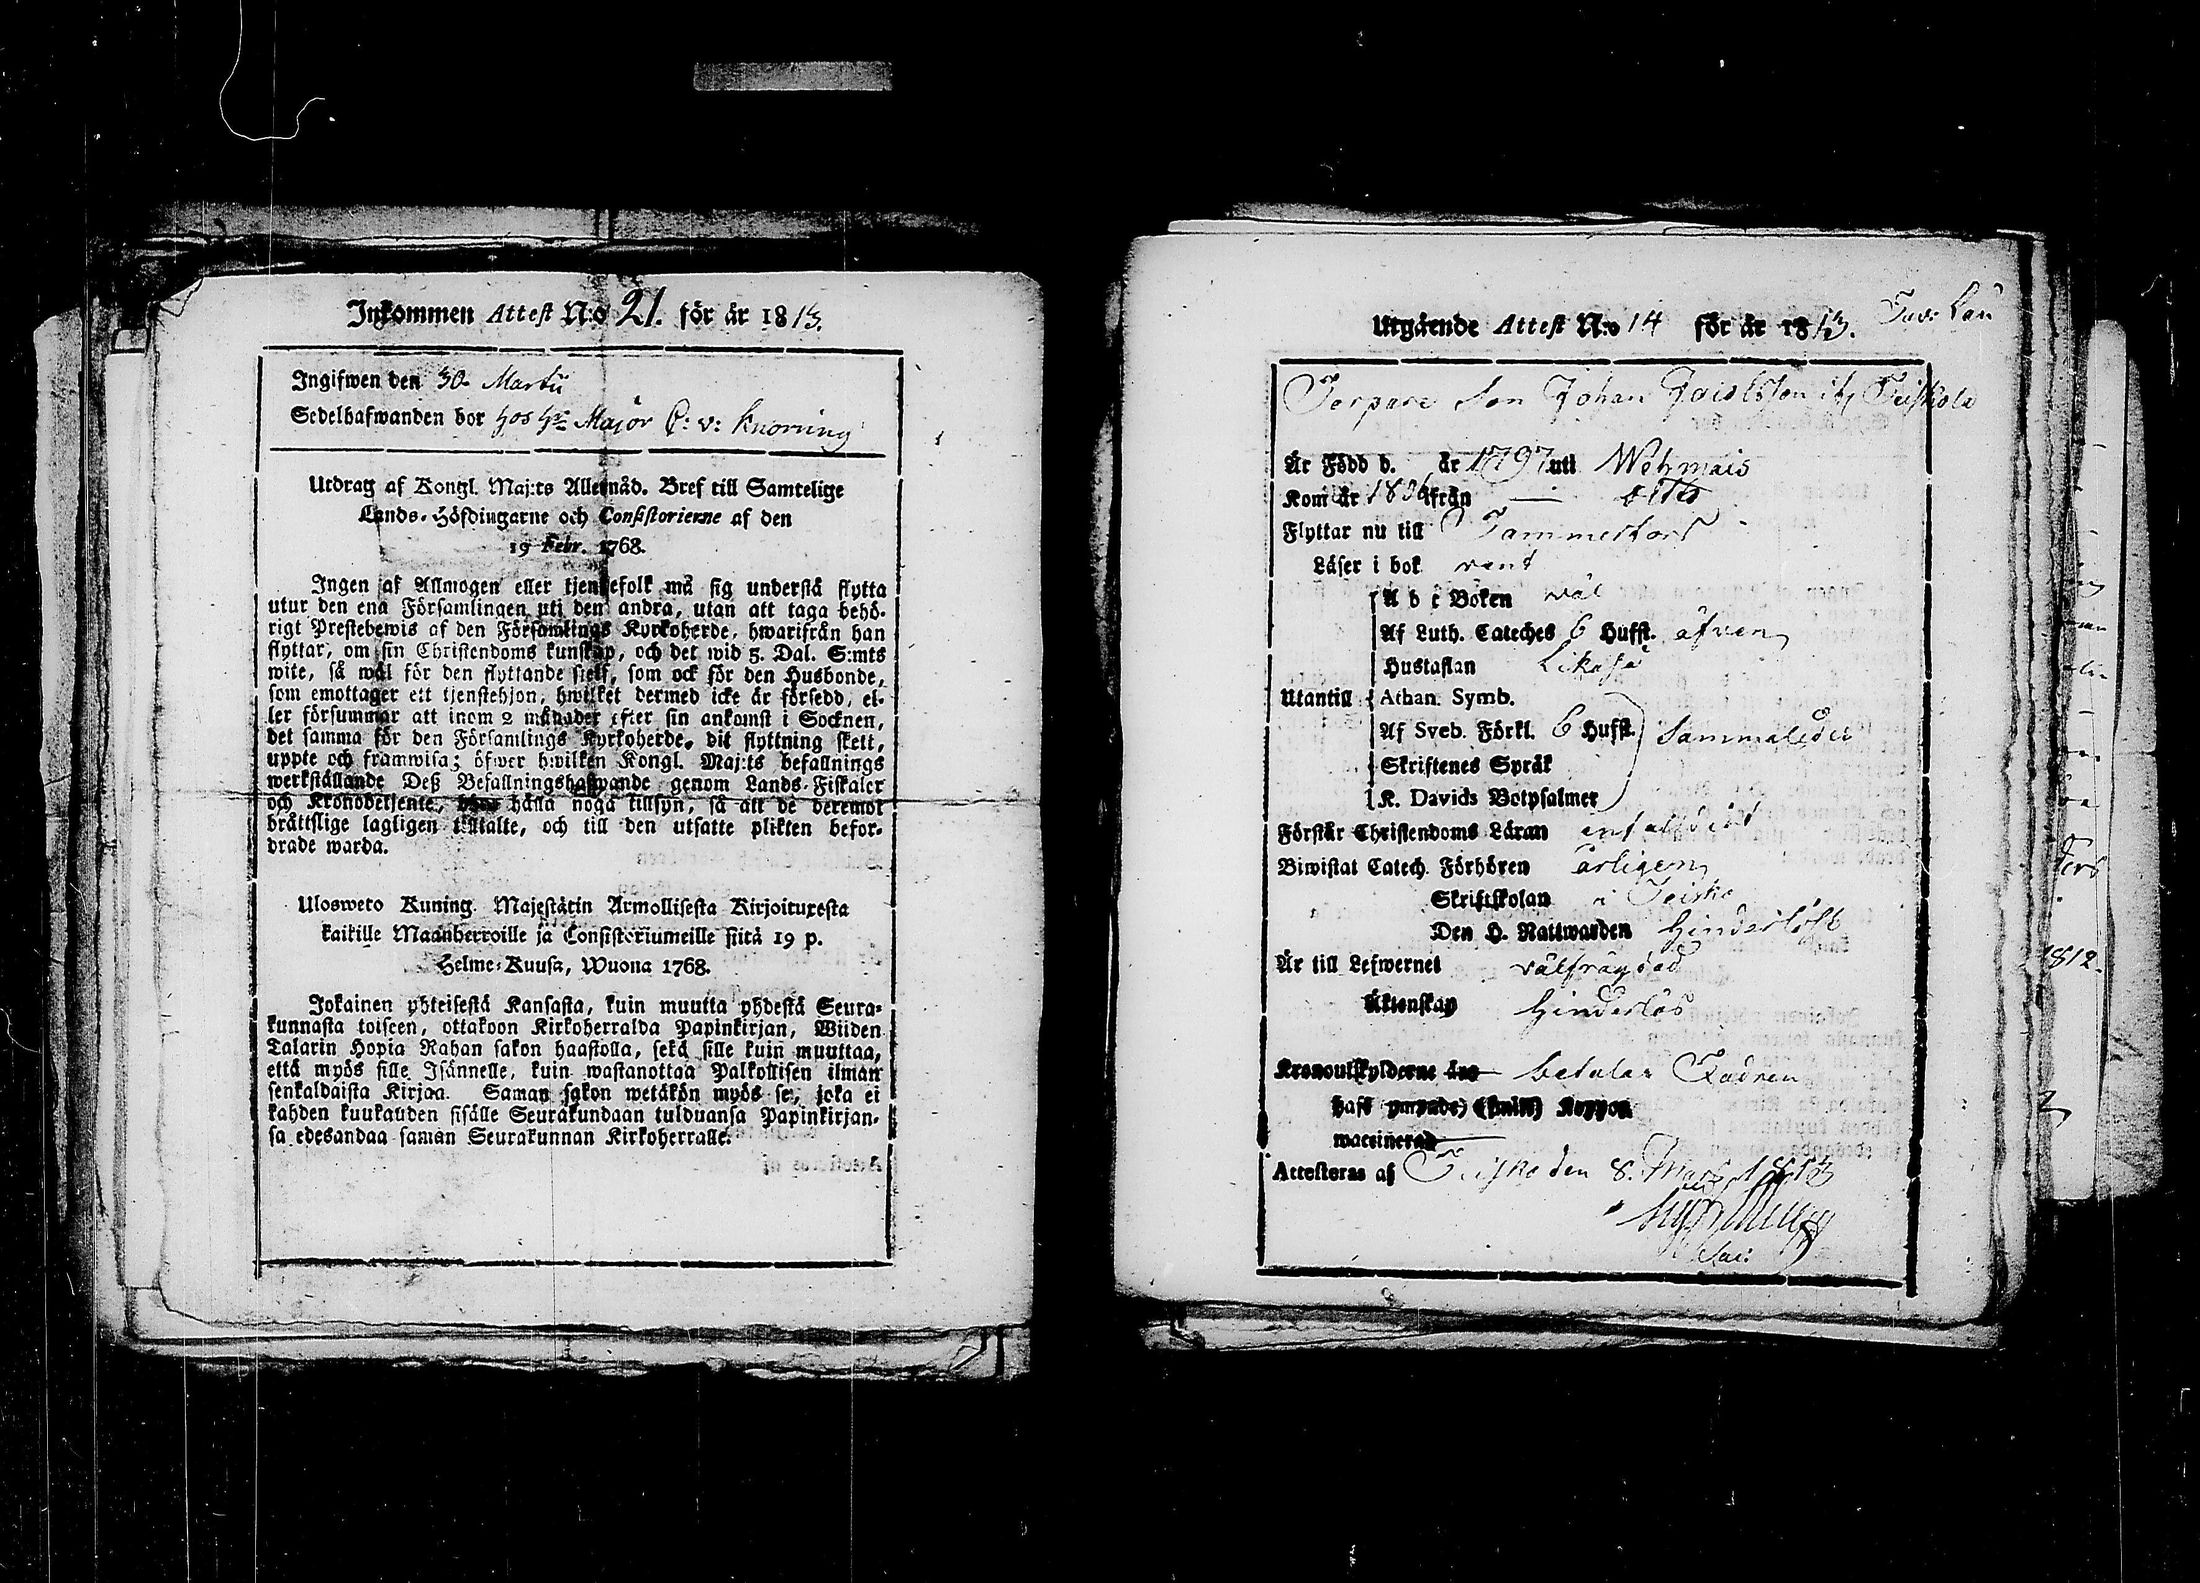 Inkommen Attest N:o 21. för år 1813.
Ingifwen den 30 Martii
Sedelhafwanden bor hos Hr Major C: v: Knorring
Utdrag af Kongl. Maj:ts Allernåd. Bref till Samtelige
Lands-Höfdingarne och Consistorierne af den
19 Febr. 1768.
Ingen af Allmogen eller tjenstefolk må sig understå flytta
utur den ena Församlingen uti den andra, utan att taga behö-
rigt Prestebewis af den Församlings Kyrkoherde, hwarifrån han
flyttar, om sin Christendoms kunskap, och det wid 5. Dal. S:mts
wite, så wäl för den flyttande sielf, som ock för den Husbonde,
som emottager ett tjenstehjon, hwilket dermed icke är försedd, el-
ler försummar att inom 2 månader efter sin ankomst i Socknen,
det samma för den Församlings Kyrkoherde, dit flyttning skett,
uppte och framwisa; öfwer hwilken Kongl. Maj:ts befallnings
werkställande Deß Befallningshafwande genom Lands-Fiskaler
och Kronobetjente, böra hålla noga tillsyn, så att de deremot
bråttslige lagligen tilltalte, och till den utsatte plikten befor-
drade warda.
Ulosweto Kuning. Majestätin Armollisesta Kirjoituxesta
kaikille Maanherroille ja Consistoriumeille siitä 19 p.
Helme-Kuusa, Wuona 1768.
Jokainen yhteisestä Kansasta, kuin muutta yhdestä Seura-
kunnasta toiseen, ottakoon Kirkoherralda Papinkirjan, Wiiden
Talarin Hopia Rahan sakon haastolla, sekä sille kuin muuttaa,
että myös sille Isännelle, kuin wastanottaa Palkollisen ilman
senkaldaista Kirjaa. Saman sakon wetäkön myös se, joka ei
kahden kuukauden sisälle Seurakundaan tulduansa Papinkirjan-
sa edesandaa saman Seurakunnan Kirkoherralle.
Utgående Attest N:o 14 för år 1813.
Torpare Son Johan if Teiskola
Är Född d. år 1797 uti Wehmais
Kom år 1806 ifrån — dito
Flyttar nu till Tammerfors
Läser i bok rent
A b c Boken wäl
Af Luth. Cateches 6 Hufst. äfven
Hustaflan Likaså
Utantill Athan. Symb.
Af Sveb. Förkl. 6 Hufst. Sammaledes
Skriftenes Språk
K. Davids Botpsalmer
Förstår Christendoms Läran enfaldigt
Biwistat Catech. Förhören årligen
Skriftskolan i Teisko
Den H. Nattwarden Hinderlöst
Är till Lefwernet wälfrägdad
Äktenskap Hinderlös
Kronoutskylderne äro betalar Fadren
haft Koppor
waccinerad
Attesteras af Teisko den 8. Mart. 1813
1812.